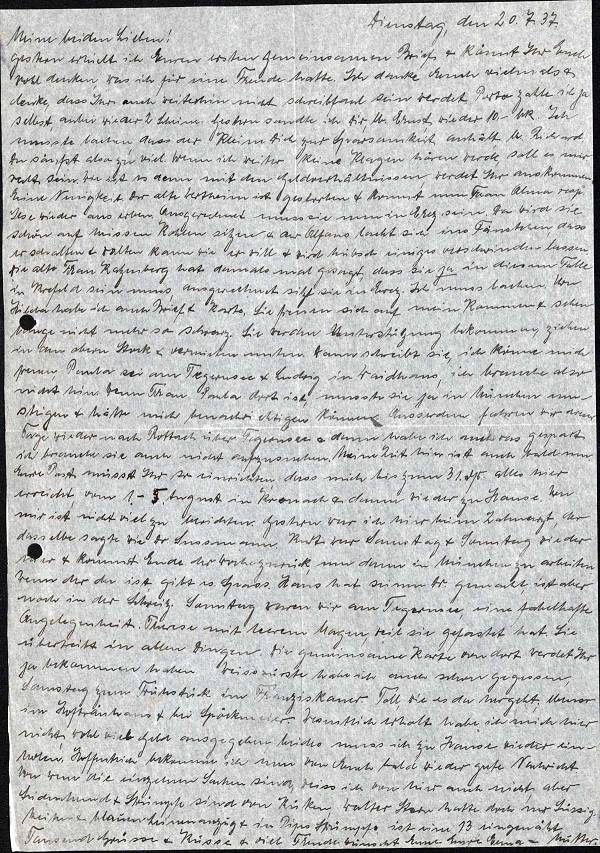 Dienstag, den 20.7.37
Meine beiden Lieben!
Gestern erhielt ich Euren ersten gemeinsamen Brief & könnt Ihr Euch
wohl denken was ich für eine Freude hatte. Ich danke Euch vielmals &
denke, dass Ihr auch weiterhin nicht schreibfaul sein werdet. Porto zahle ich ja
selbst anbei wieder 2 Scheine. Gestern sandte ich Dir lb. Ernst wieder 10.- Mk. Ich
musste lachen dass der Kleine Dich zur Sparsamkeit anhält lb. Richard
Du sängst also zu viel wenn ich weiter keine Klagen hören werde, soll es mir
recht sein. Wie ist es denn mit den Geldverhältnissen werdet Ihr auskommen
Eine Neuigkeit der alte Wertheim ist gestorben & kommt nun Frau Alma resp.
Ilse wieder ans erben. Ausgerechnet muss sie nun in Erez sein. Da wird sie
schön auf heissen Kohlen sitzen & der Alfons lacht sich ins Fäustchen dass
er schalten & walten kann wie er will & wird hübsch einiges verschwinden lassen
Die alte Frau Katzenberg hat damals mal gesagt, dass sie ja in diesem Falle
in Krefeld sein muss ausgerechnet sitzt sie in Erez. Ich muss lachen. Von
Hilda habe ich auch Brief & Karte. Sie freuen sich auf mein Kommen & sehen
lange nicht mehr so schwarz. Sie werden Unterstützung bekommen, ziehen
in den obern Stock & vermieten unten. Dann schreibt sie, ich könne mich
freuen Paula sei am Tegernsee & Ludwig in Waidhaus, ich brauche also
nicht hin denn Frau Paula dort ist, musste sie ja in München um-
steigen & hätte mich benachrichtigen können. Ausserdem fahren wir dieser
Tage wieder nach Rottach über Tegernsee & dann habe ich auch was gespart
ich brauche sie auch nicht aufzusuchen. Meine Zeit hier ist auch bald um
Eure Post müsst Ihr so einrichten, dass mich bis zum 31. ds. alles hier
erreicht, vom 1.-5. August in Kronach & dann wieder zu Hause. Von
mir ist nicht viel zu berichten. Gestern war ich hier beim Zahnarzt, der
dasselbe sagte wie Dr. Sussmann. Kurt war Samstag & Sonntag wieder
hier & kommt Ende der Woche zurück um dann in München zu arbeiten
wenn der da ist gibt es Spass. Hans hat seinen Dr. gemacht, ist aber
noch in der Schweiz. Samstag waren wir am Tegernsee eine fabelhafte
Angelegenheit. Therese mit leerem Magen weil sie gefastet hat. Sie
übertreibt in allen Dingen. Die gemeinsame Karte von dort werdet Ihr
ja bekommen haben. Weisswürste habe ich auch schon gegessen,
Samstag zum Frühstück im Franziskaner. Toll wie es da hergeht, ebenso
im Hofbräuhaus & bei Spöckmeier. Wesentlich erholt habe ich mich hier
nicht, wohl viel Geld ausgegeben beides muss ich zu Hause wieder ein-
holen. Hoffentlich bekomme ich nun von Euch bald wieder gute Nachricht.
Von wem die einzelnen Sachen sind, weiss ich von hier auch nicht aber
Seidenhemd & Strümpfe sind von Küken. Walter Stern hatte doch nur Süssig-
keiten & blauen Leinenanzug & in Pips Strümpfe ist eine 13 eingenäht.
Tausend Grüsse & Küsse & viel Freude wünscht Eure Erna - Mutter